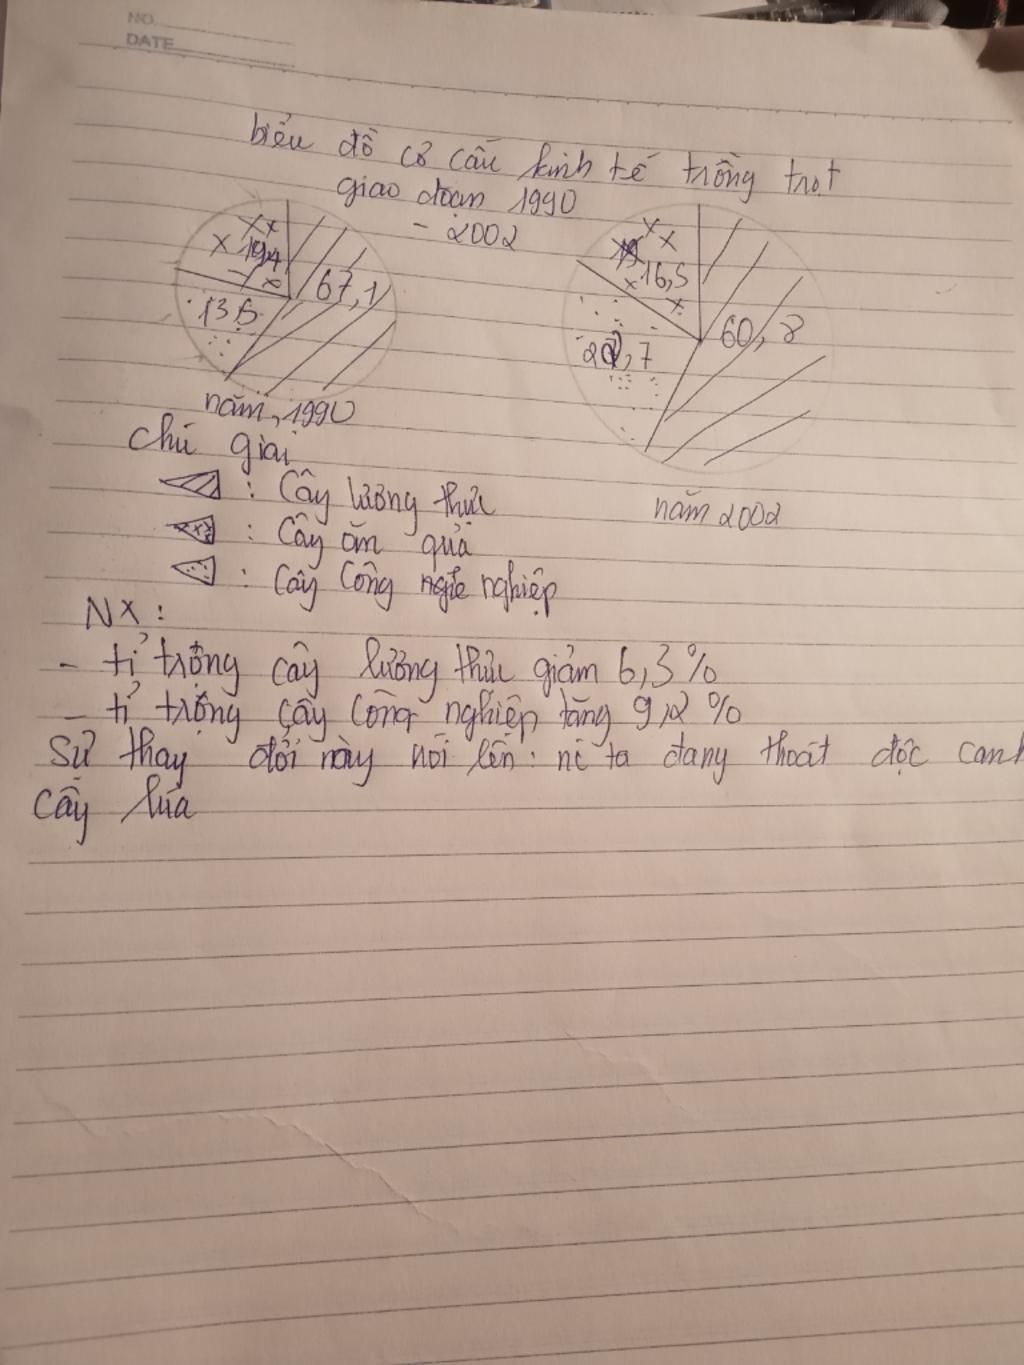 NO.
DATE
biểu đồ cơ cấu kinh tế trồng trọt
giao đoạn 1990
- 2002
19,4
67,1
13,5
16,5
60,8
22,7
năm 1990
năm 2002
chú giải
: Cây lương thực
: Cây ăn quả
: Cây công nghiệp
NX:
- tỉ trọng cây lương thực giảm 6,3%
- tỉ trọng cây công nghiệp tăng 9,2%
Sự thay đổi này nói lên: nc ta đang thoát độc canh
cây lúa